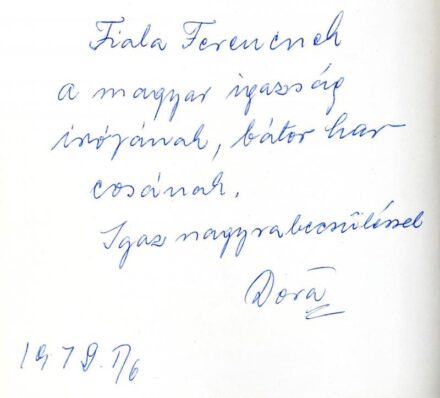 Fiala Ferencnek
a magyar igazság
írójának, bátor har
cosának.
Igaz nagyrabecsüléssel
Dorá
1979. V/6